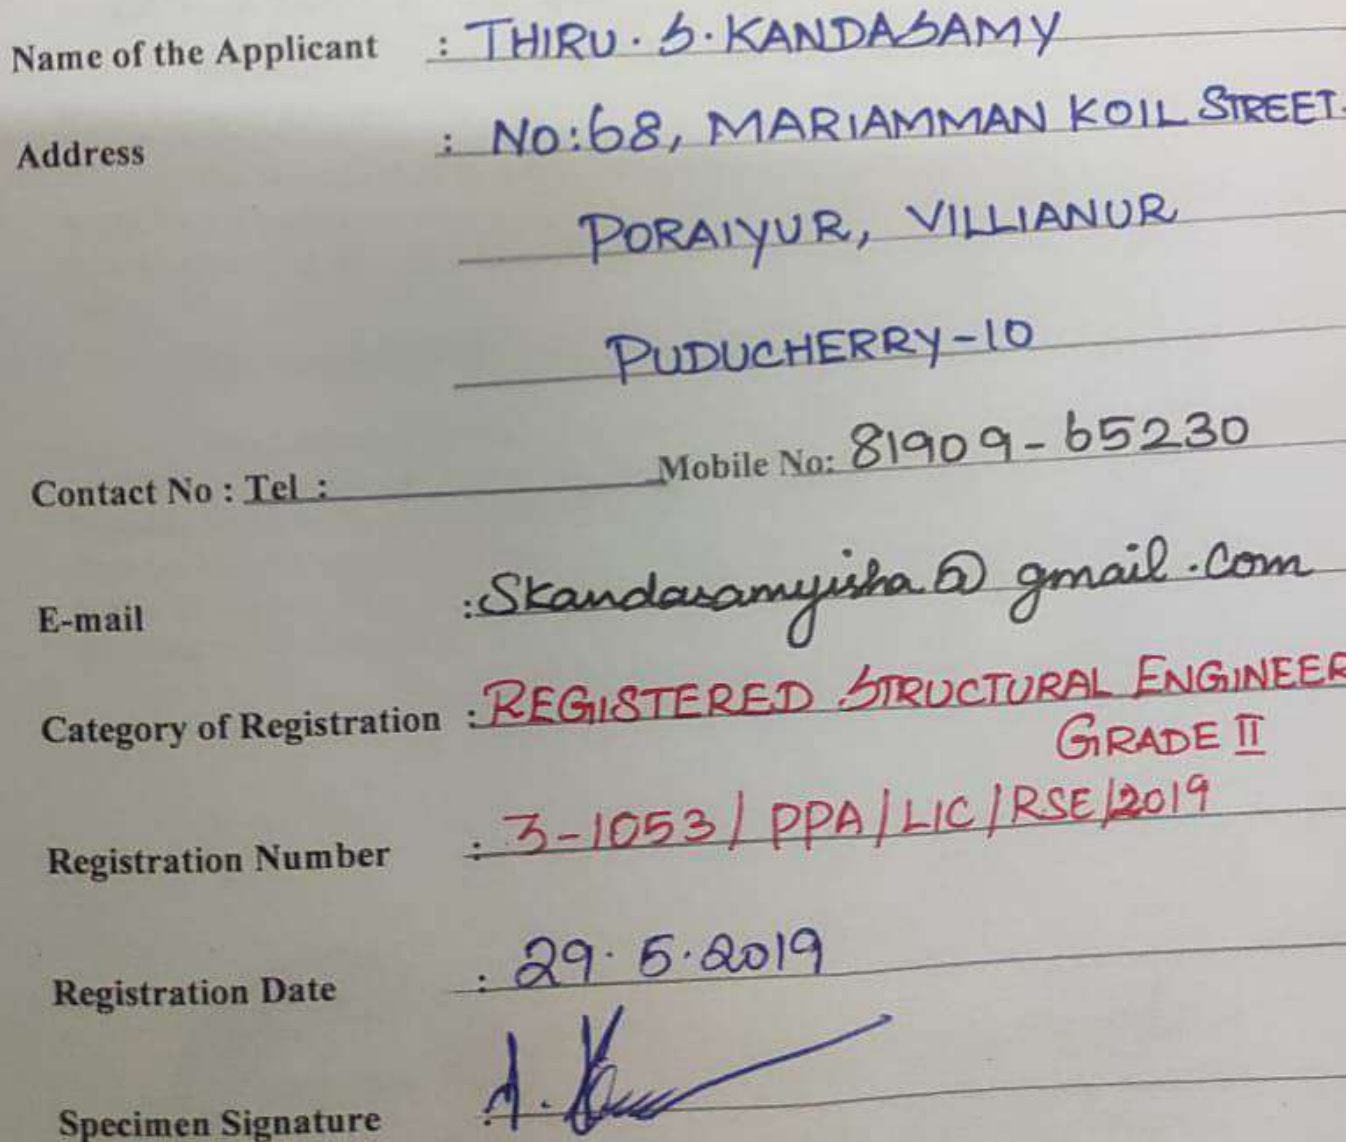 Name of the Applicant : THIRU. S. KANDASAMY
Address : NO:68, MARIAMMAN KOIL STREET.
PORAIYUR, VILLIANUR
PUDUCHERRY-10
Contact No : Tel : Mobile No: 81909-65230
E-mail : Skandasamyisha@gmail.com
Category of Registration : REGISTERED STRUCTURAL ENGINEER
GRADE II
Registration Number : 3-1053/PPA/LIC/RSE/2019
Registration Date : 29.5.2019
Specimen Signature :